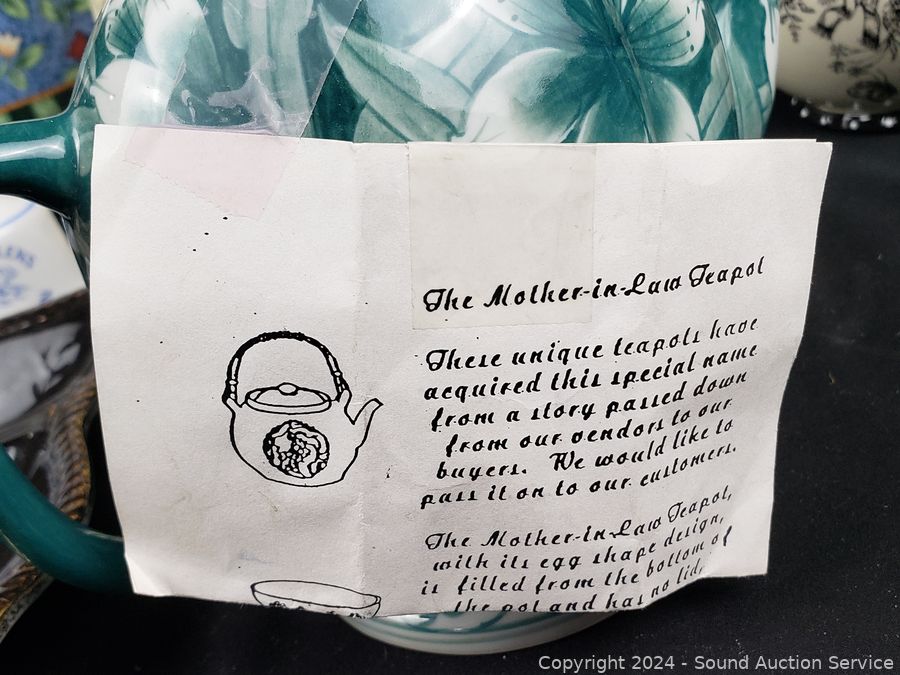 The Mother-in-Law Teapot
These unique teapots have
acquired this special name
from a story passed down
from our vendors to our
buyers. We would like to
pass it on to our customers.
The Mother-in-Law Teapot,
with its egg shape design,
is filled from the bottom of
the pot and has no lid.
Copyright 2024 - Sound Auction Service